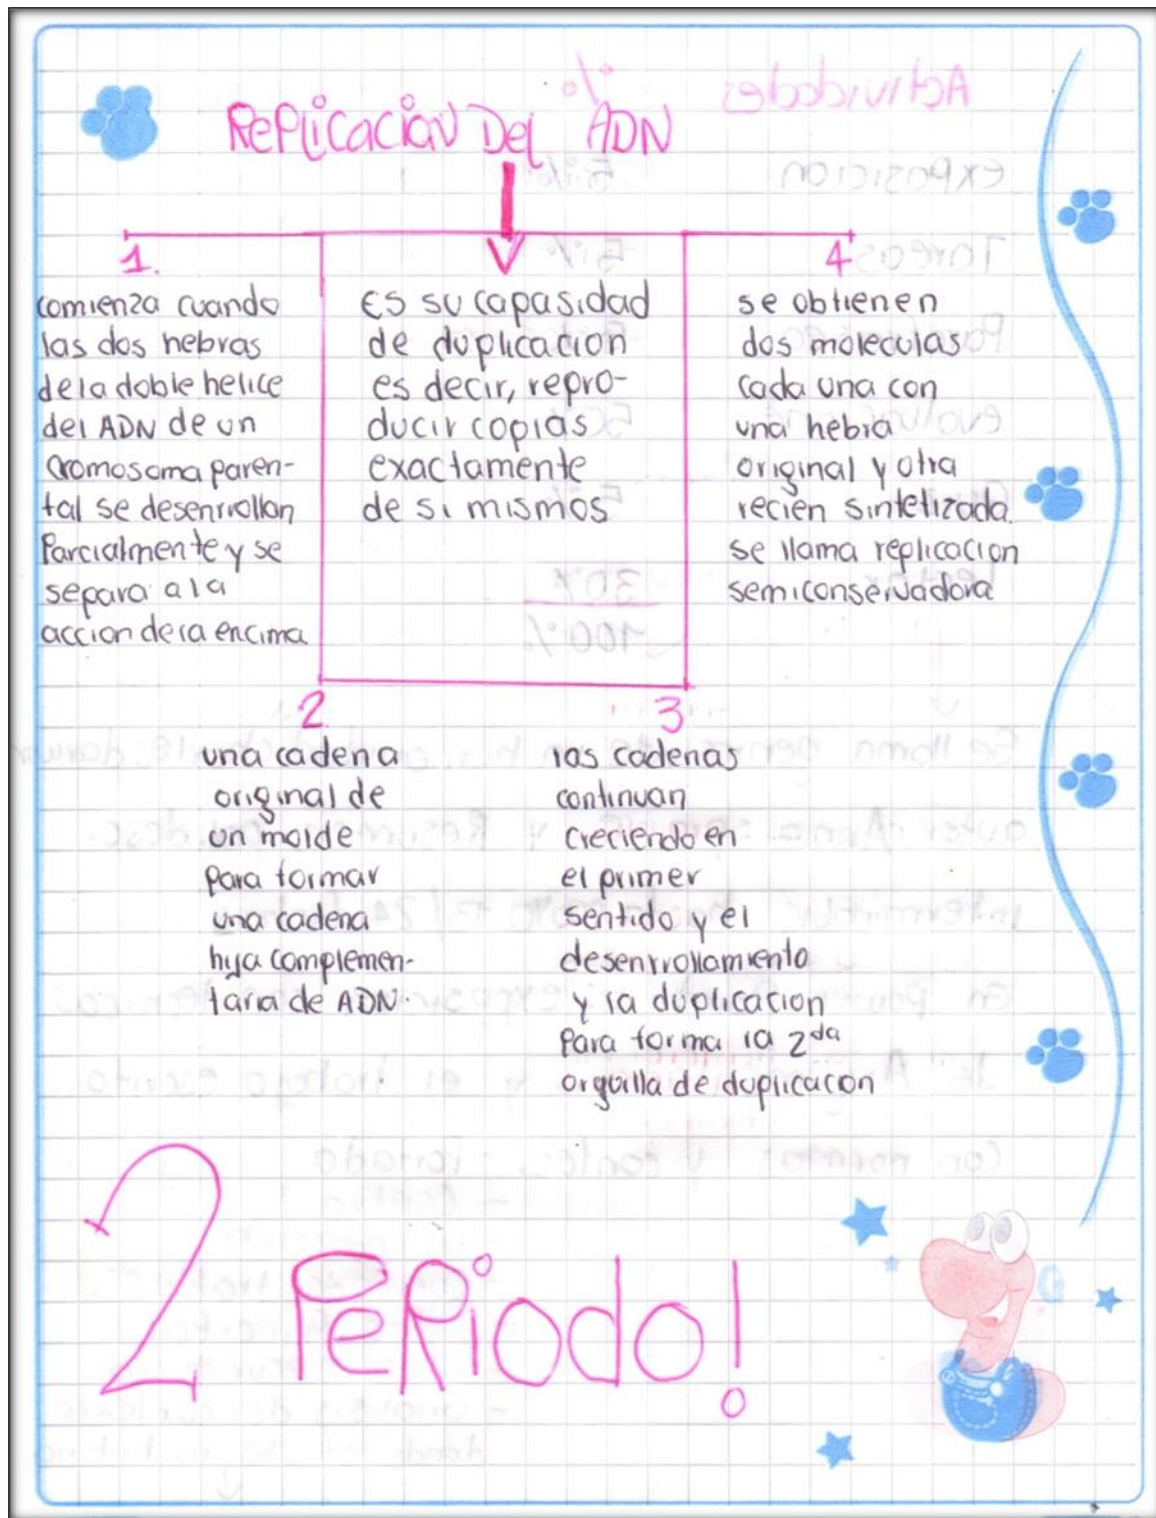 Replicacion Del ADN
1.
comienza cuando
las dos hebras
de la doble helice
del ADN de un
cromosoma paren-
tal se desenrrollan
Parcialmente y se
separa a la
accion de la encima
Es su capasidad
de duplicacion
es decir, repro-
ducir copias
exactamente
de si mismos
4
se obtienen
dos moleculas
cada una con
una hebra
original y otra
recien sintetizada.
se llama replicacion
semiconservadora
2
una cadena
original de
un molde
para formar
una cadena
hija complemen-
taria de ADN.
3
las cadenas
continuan
creciendo en
el primer
sentido y el
desenrrollamiento
y la duplicacion
Para forma la 2da
orquilla de duplicacon
2 Periodo!